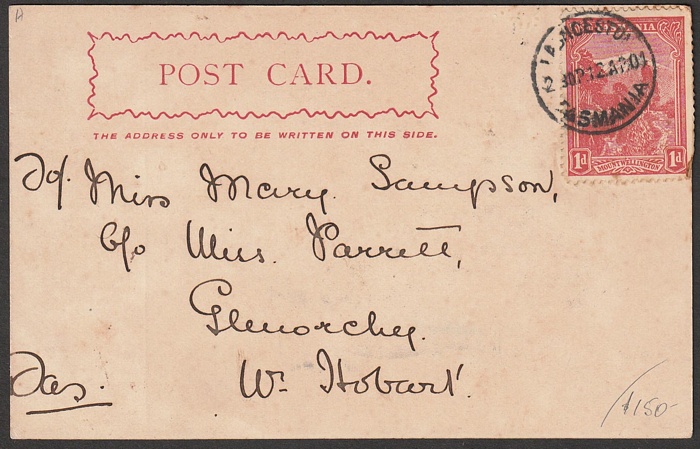 A
POST CARD.
THE ADDRESS ONLY TO BE WRITTEN ON THIS SIDE.
TASMANIA
TASMANIA
1d 1d
MOUNT WELLINGTON
To/. Miss Mary Sampson,
c/o Miss. Parrett,
Glenorchy.
Wr. Hobart.
Tas.
$150-